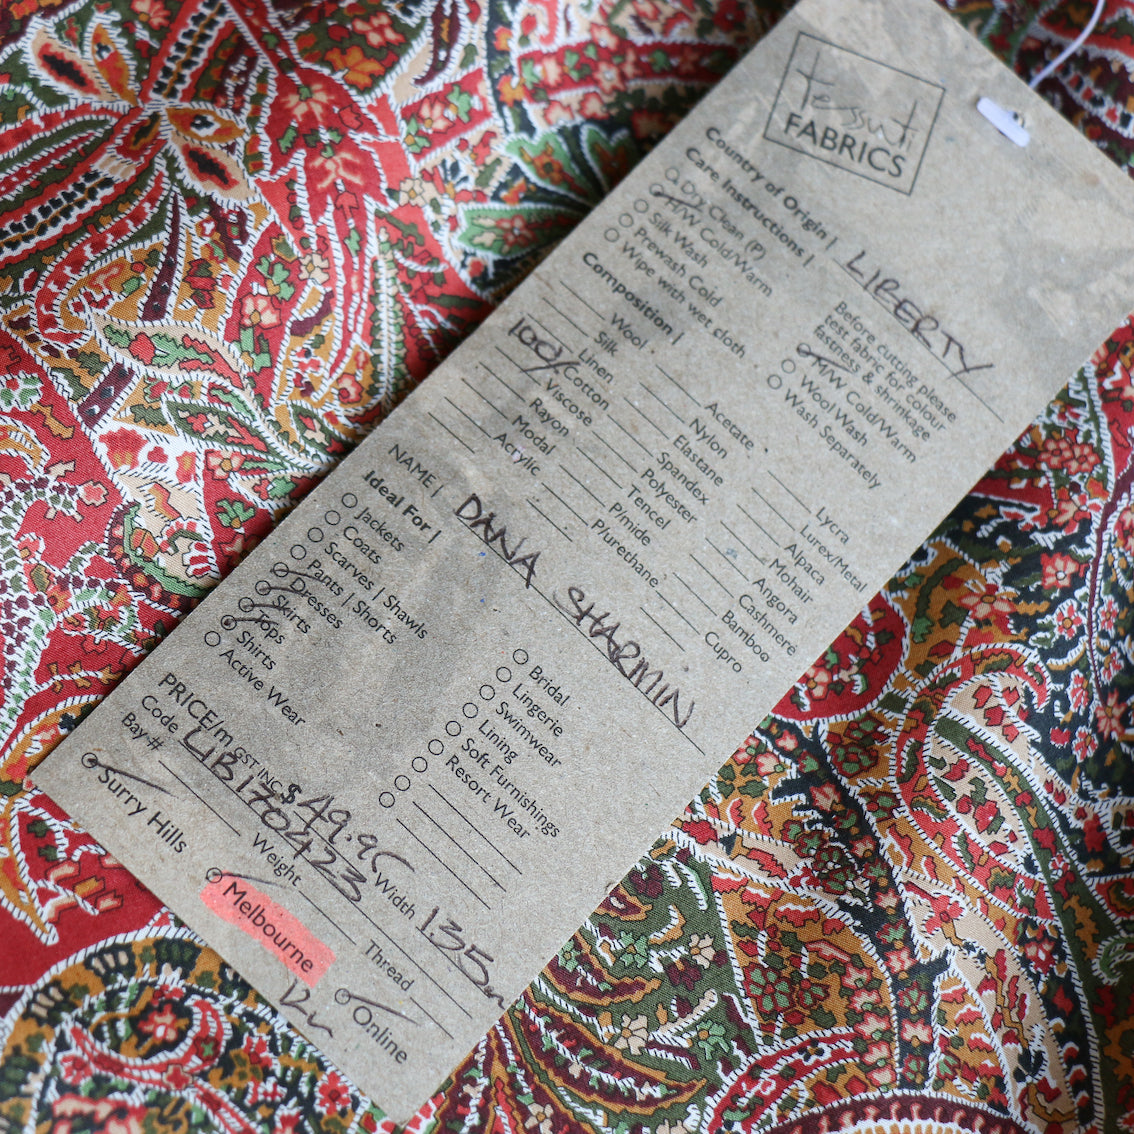 Tessuti
FABRICS
Country of Origin | LIBERTY
Care Instructions |
Dry Clean (P)
H/W Cold/Warm
Silk Wash
Prewash Cold
Wipe with wet cloth
Before cutting please
test fabric for colour
fastness & shrinkage
M/W Cold/Warm
Wool Wash
Wash Separately
Composition |
Wool
Silk
Linen
100% Cotton
Viscose
Rayon
Modal
Acrylic
Acetate
Nylon
Elastane
Spandex
Polyester
Tencel
P/mide
P/urethane
Lycra
Lurex/Metal
Alpaca
Mohair
Angora
Cashmere
Bamboo
Cupro
NAME | DANA SHARMIN
Ideal For |
Jackets
Coats
Scarves | Shawls
Pants | Shorts
Dresses
Skirts
Tops
Shirts
Active Wear
Bridal
Lingerie
Swimwear
Lining
Soft Furnishings
Resort Wear
PRICE/m GST INC $49.95
Code LIB170423 Width 135
Bay # Weight Thread
Surry Hills Melbourne Online